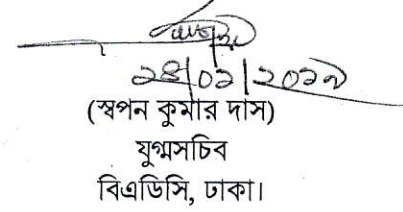 ২৪/০১/২০১৯
(স্বপন কুমার দাস)
যুগ্মসচিব
বিএডিসি, ঢাকা।